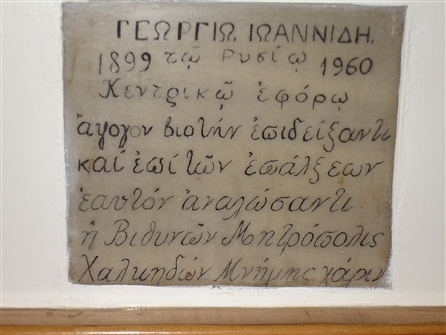 ΓΕΩΡΓΙῼ ΙΩΑΝΝΙΔΗ.
1899 τῷ Ρυσίῳ 1960
Κεντρικῷ ἐφόρῳ
ἄψογον βιοτήν ἐπιδείξαντι
καί ἐπί τῶν ἐπάλξεων
ἑαυτόν ἀναλώσαντι
ἡ Βιθυνῶν Μητρόπολις
Χαλκηδών Μνήμης χάριν